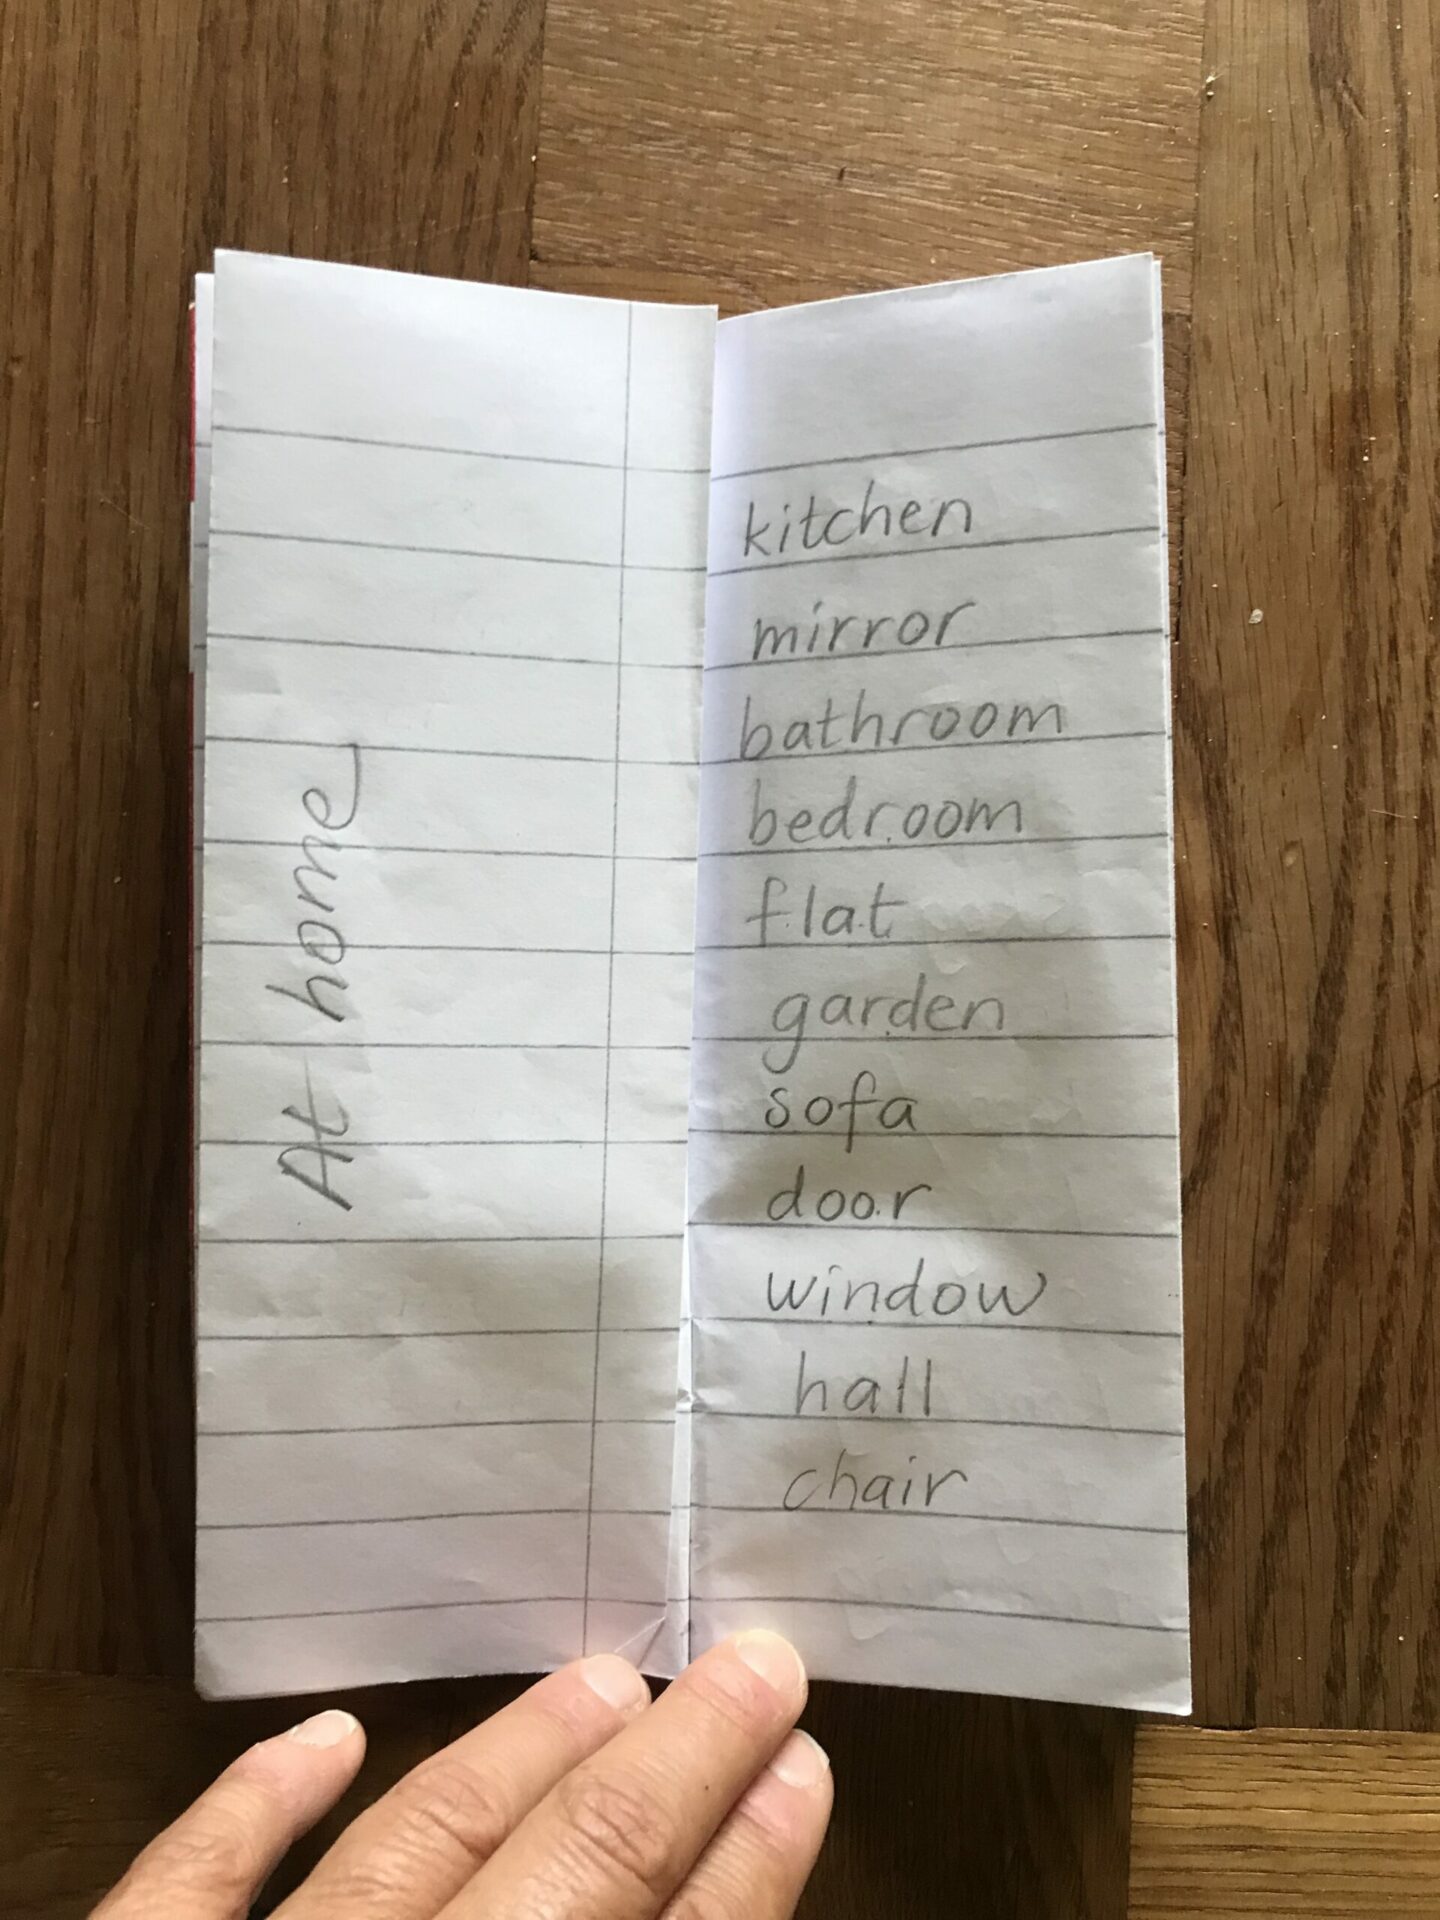 At home
kitchen
mirror
bathroom
bedroom
flat
garden
sofa
door
window
hall
chair